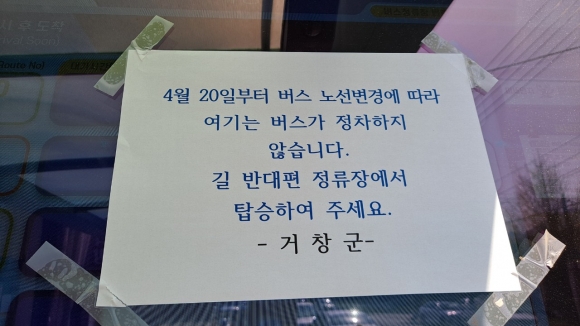 4월 20일부터 버스 노선변경에 따라
여기는 버스가 정차하지
않습니다.
길 반대편 정류장에서
탑승하여 주세요.
- 거창군-